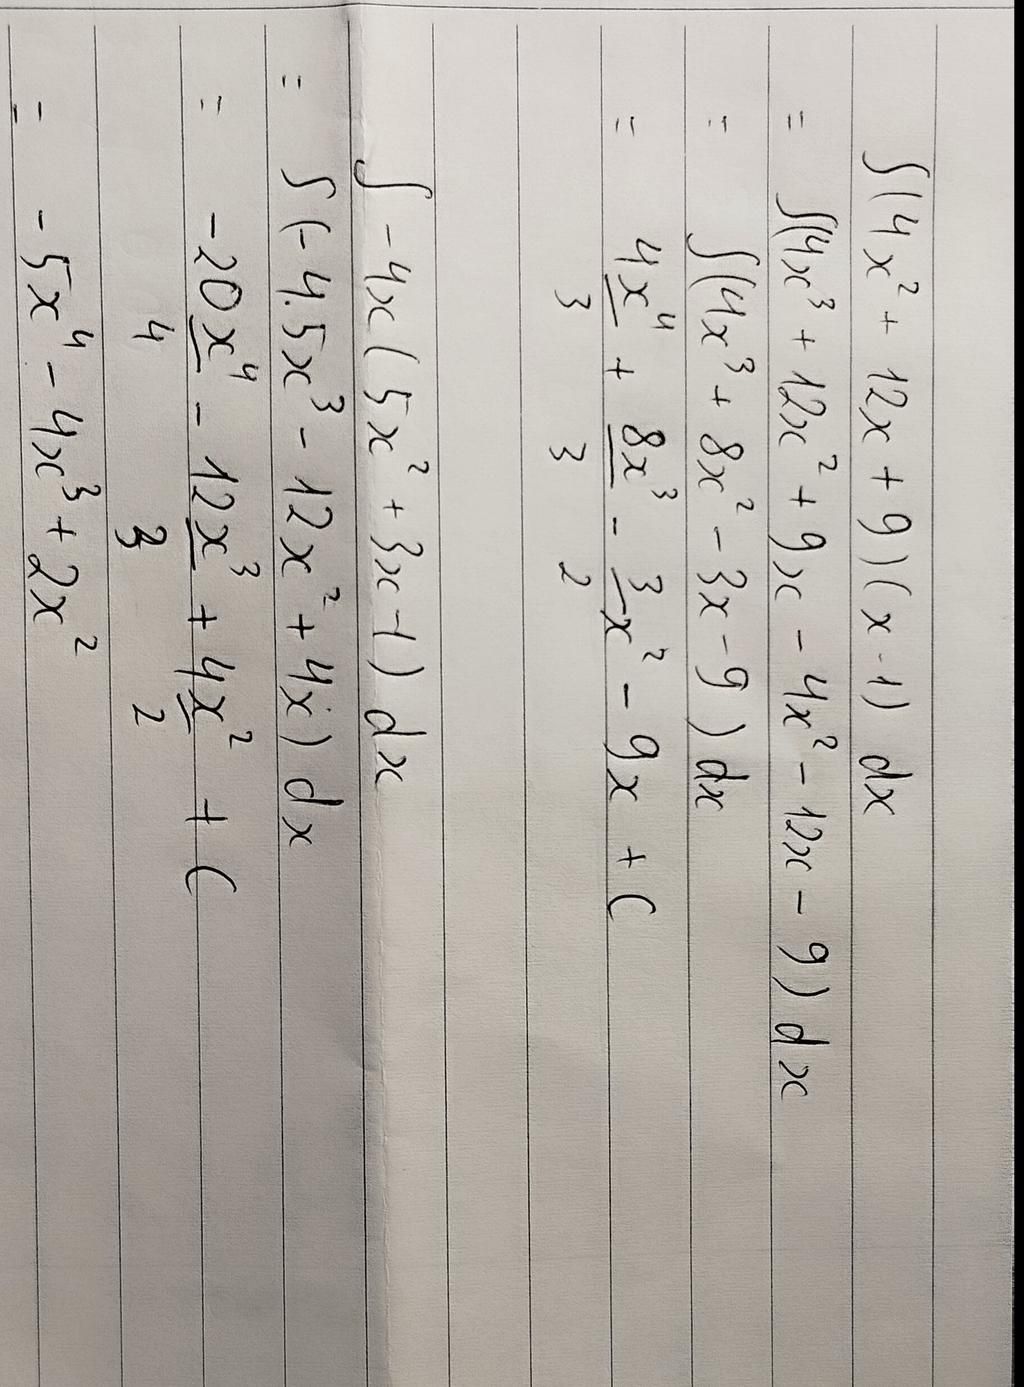 ∫(4x² + 12x + 9)(x-1) dx
= ∫(4x³ + 12x² + 9x - 4x² - 12x - 9) dx
= ∫(4x³ + 8x² - 3x - 9) dx
= 4x⁴/3 + 8x³/3 - 3/2 x² - 9x + C
∫ -4x(5x² + 3x - 1) dx
= ∫(-4.5x³ - 12x² + 4x) dx
= -20x⁴/4 - 12x³/3 + 4x²/2 + C
= -5x⁴ - 4x³ + 2x²